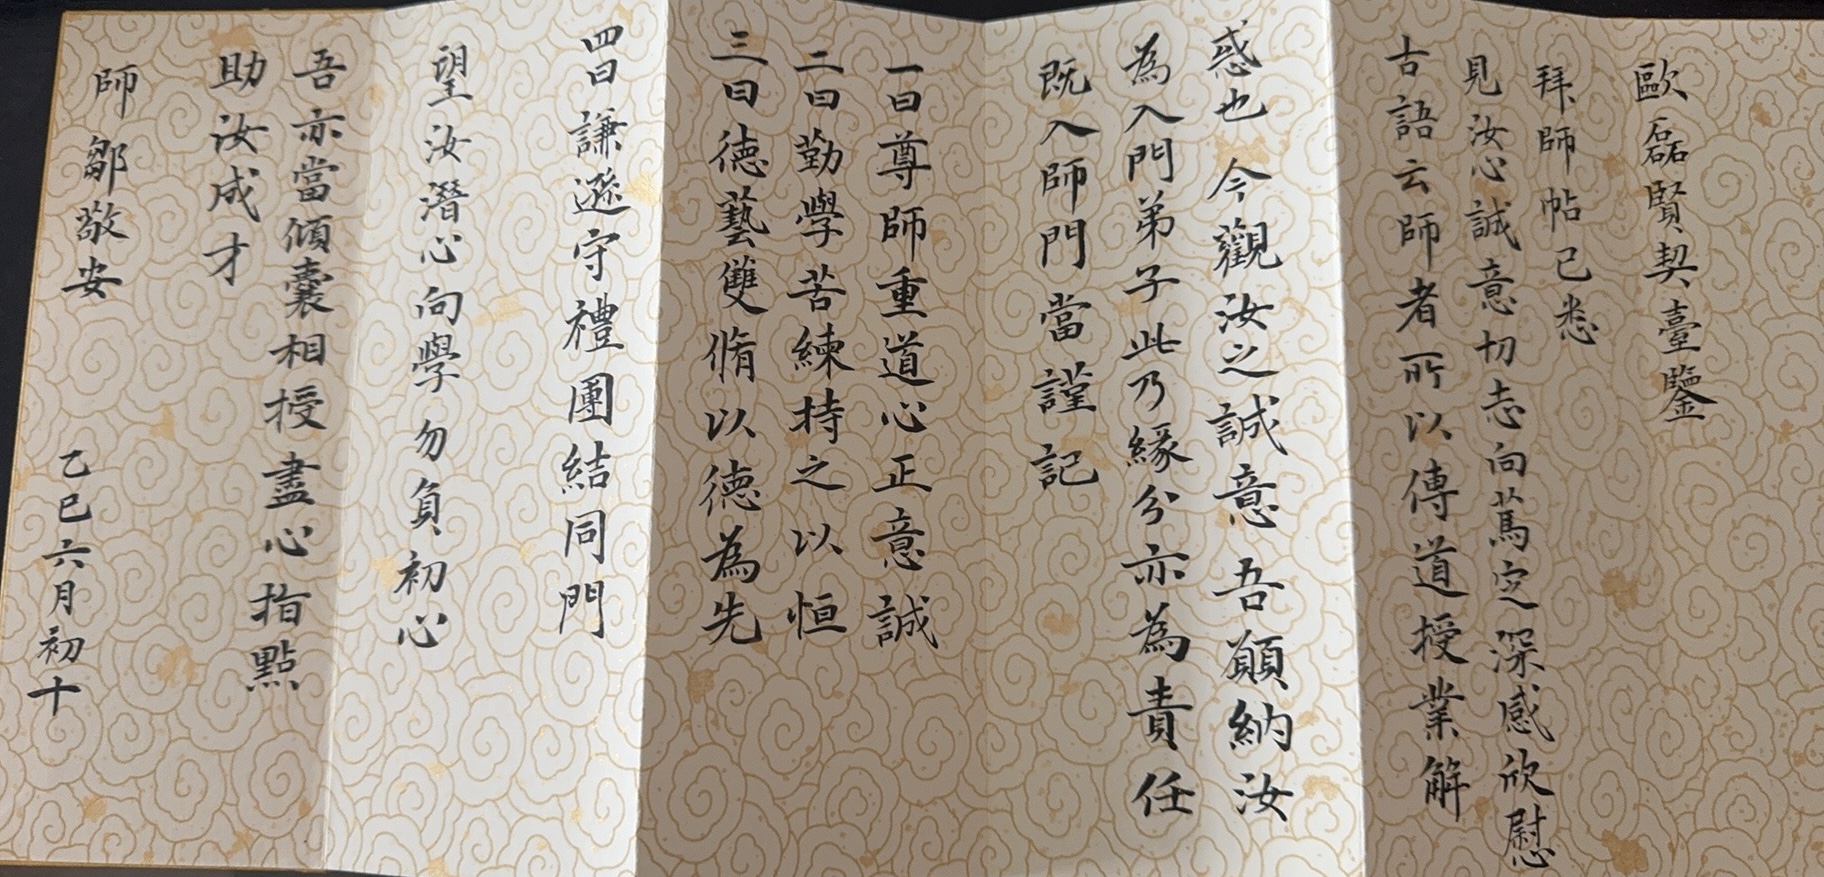 歐磊賢契臺鑒
拜師帖已悉
見汝心誠意切志向篤定深感欣慰
古語云師者所以傳道授業解
惑也今觀汝之誠意吾願納汝
為入門弟子此乃緣分亦為責任
既入師門當謹記
一曰尊師重道心正意誠
二曰勤學苦練持之以恒
三曰德藝雙脩以德為先
四曰謙遜守禮團結同門
望汝潛心向學勿負初心
吾亦當傾囊相授盡心指點
助汝成才
師鄒敬安
乙巳六月初十